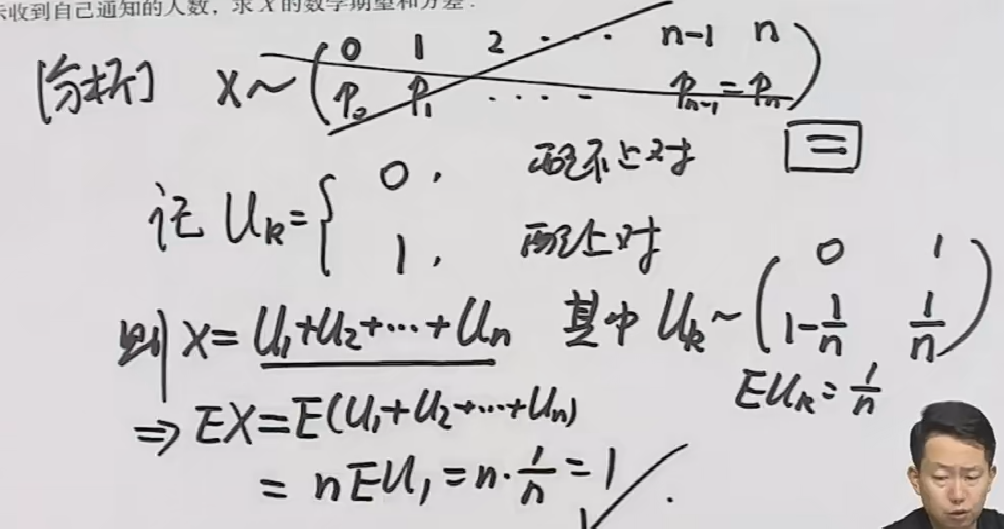 收到自己通知的人数,求 X 的数学期望和方差.
[分析] X~(0 1 2 ... n-1 n
P₀ P₁ .... Pₙ₋₁=Pₙ)
二
记 Uₖ={0, 配不上对
1, 配上对
则 X=U₁+U₂+...+Uₙ 其中 Uₖ~(0 1
1-1/n 1/n)
⇒ EX=E(U₁+U₂+...+Uₙ) EUₖ=1/n
= nEU₁=n·1/n=1.